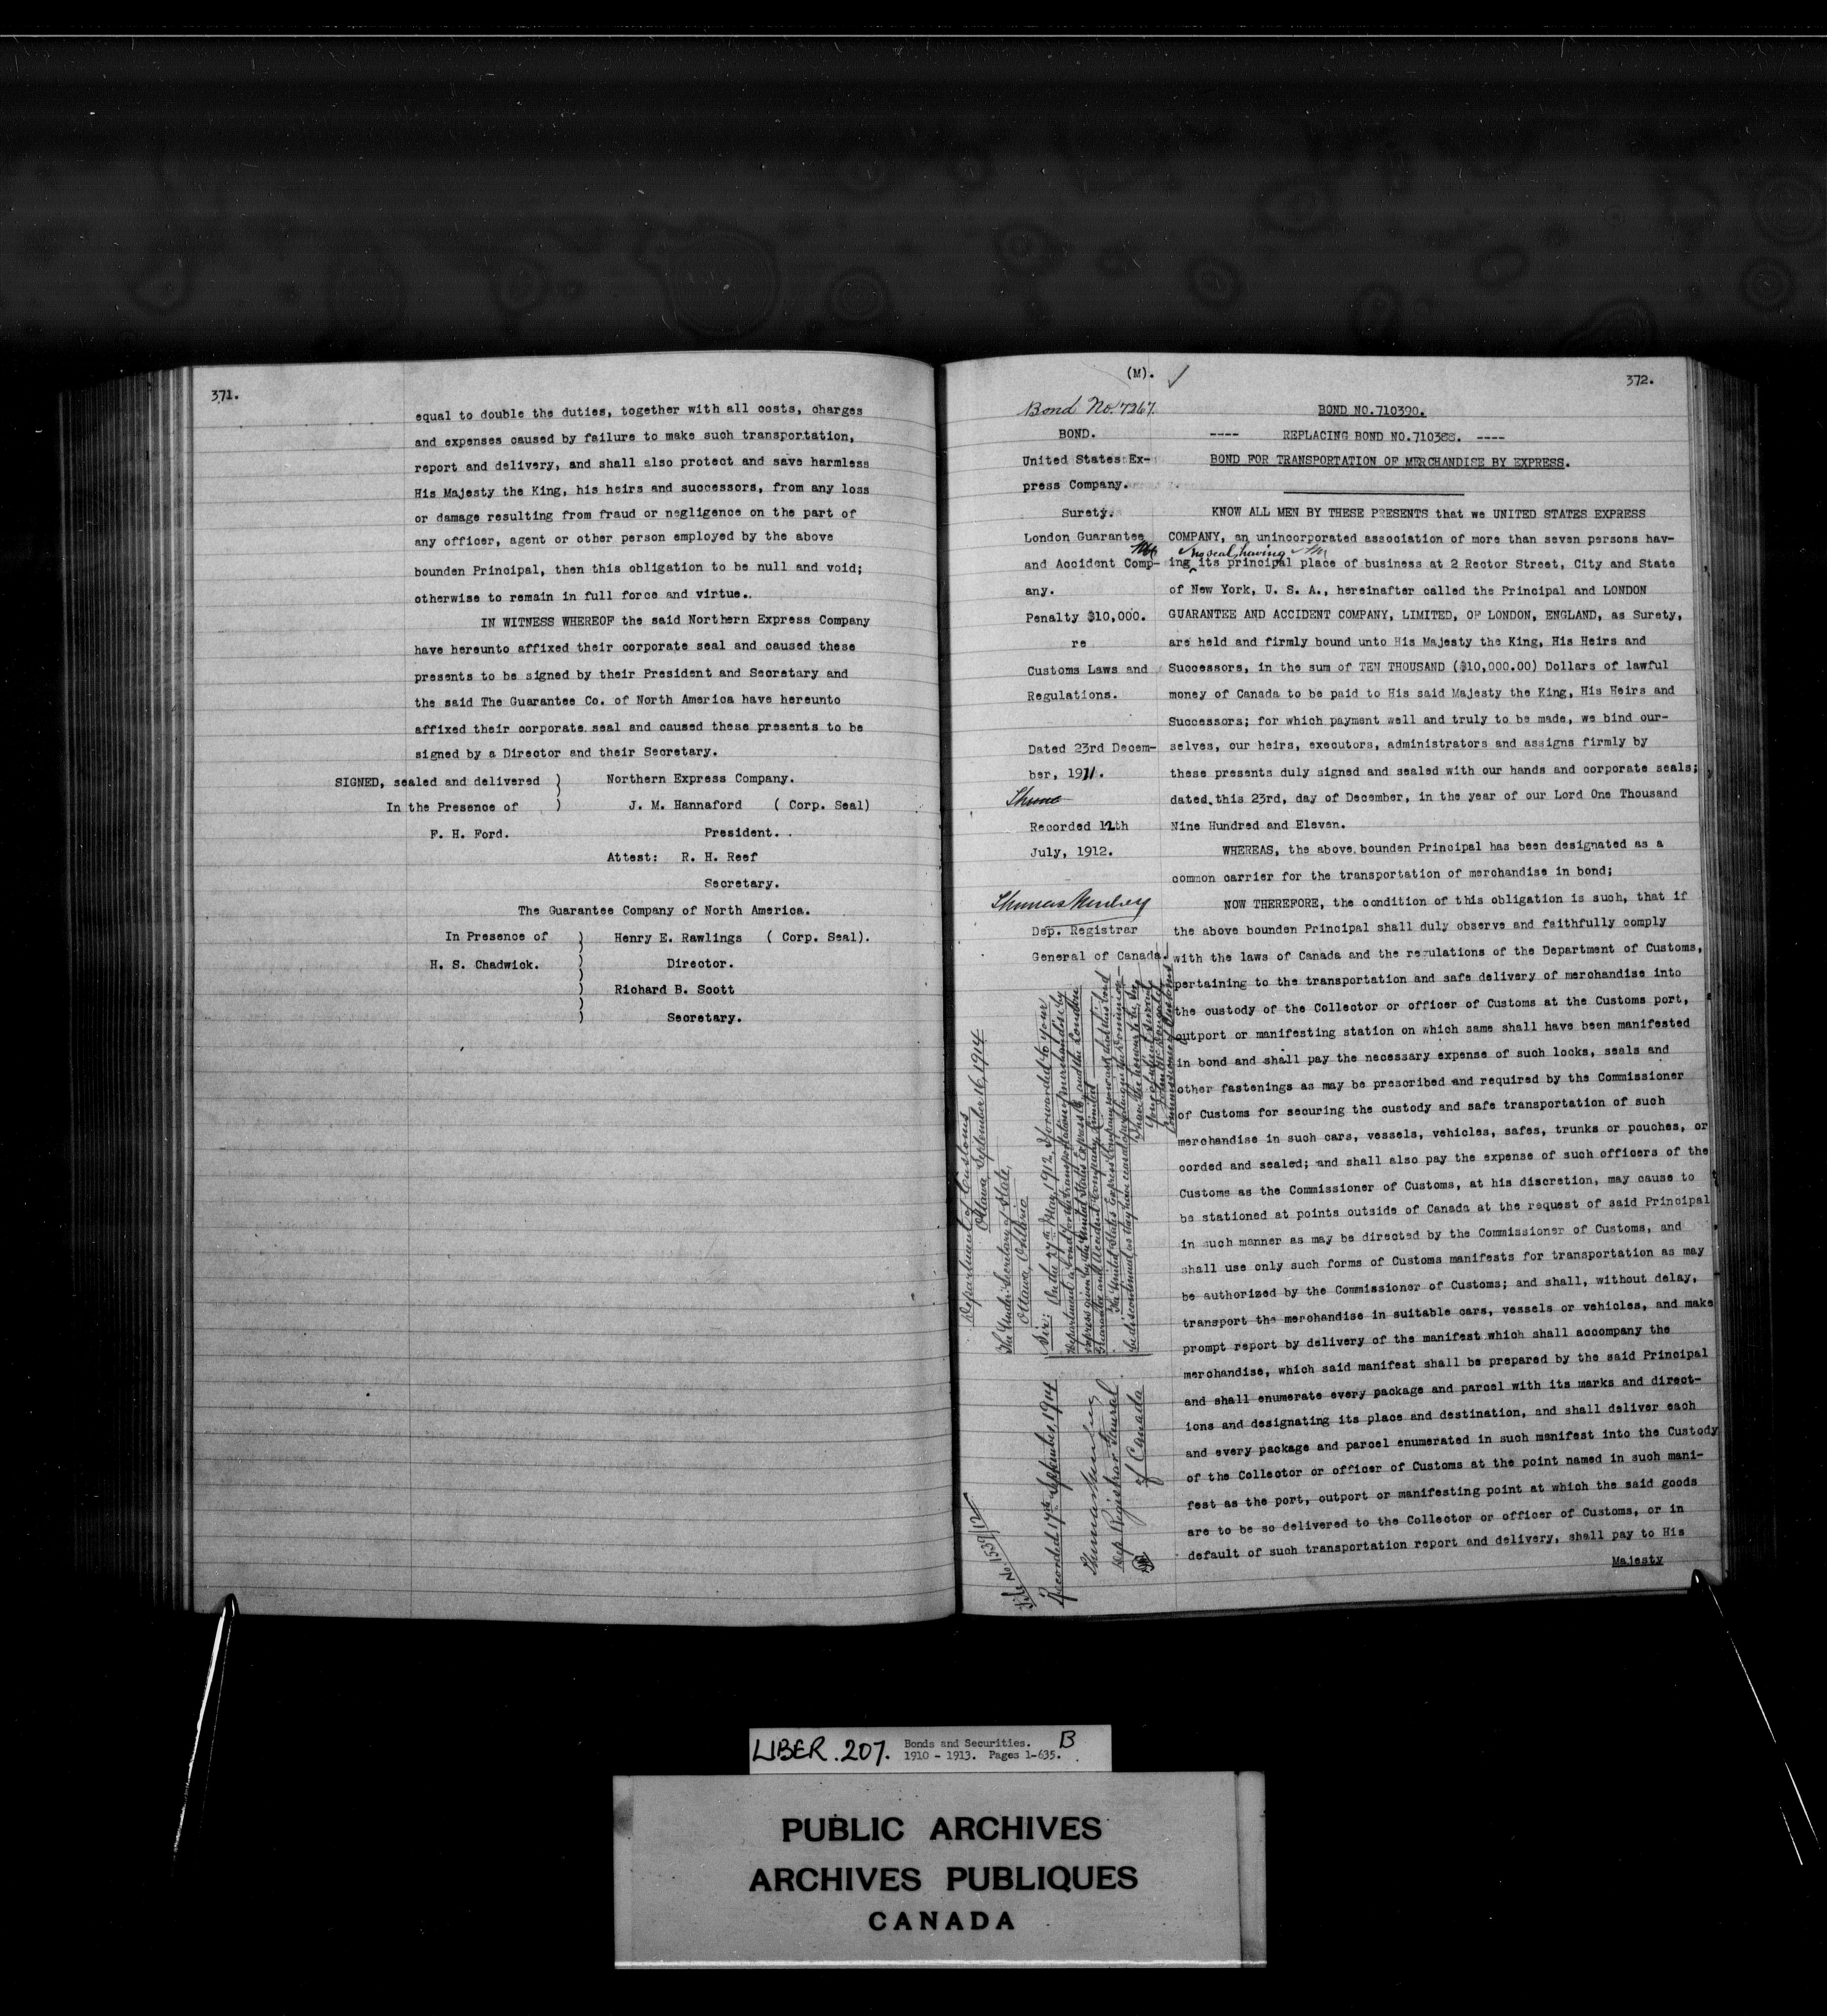 371.
equal to double the duties, together with all costs, charges
and expenses caused by failure to make such transportation,
report and delivery, and shall also protect and save harmless
His Majesty the King, his heirs and successors, from any loss
or damage resulting from fraud or negligence on the part of
any officer, agent or other person employed by the above
bounden Principal, then this obligation to be null and void;
otherwise to remain in full force and virtue.
IN WITNESS WHEREOF the said Northern Express Company
have hereunto affixed their corporate seal and caused these
presents to be signed by their President and Secretary and
the said The Guarantee Co. of North America have hereunto
affixed their corporate seal and caused these presents to be
signed by a Director and their Secretary.
SIGNED, sealed and delivered ) Northern Express Company.
In the Presence of ) J. M. Hannaford ( Corp. Seal)
F. H. Ford. President.
Attest: R. H. Reef
Secretary.
The Guarantee Company of North America.
In Presence of ) Henry E. Rawlings ( Corp. Seal).
H. S. Chadwick. ) Director.
) Richard B. Scott
) Secretary.
(M). ✓
372.
Bond No. 7267.
BOND.
United States Ex-
press Company.
Surety.
London Guarantee
and Accident Comp-
any.
Penalty $10,000.
re
Customs Laws and
Regulations.
Dated 23rd Decem-
ber, 1911.
Recorded 12th
July, 1912.
Thomas Mulvey
Dep. Registrar
General of Canada.
BOND NO.710390.
---- REPLACING BOND NO.710388. ----
BOND FOR TRANSPORTATION OF MERCHANDISE BY EXPRESS.
KNOW ALL MEN BY THESE PRESENTS that we UNITED STATES EXPRESS
COMPANY, an unincorporated association of more than seven persons hav-
no seal, having
ing its principal place of business at 2 Rector Street, City and State
of New York, U. S. A., hereinafter called the Principal and LONDON
GUARANTEE AND ACCIDENT COMPANY, LIMITED, OF LONDON, ENGLAND, as Surety,
are held and firmly bound unto His Majesty the King, His Heirs and
Successors, in the sum of TEN THOUSAND ($10,000.00) Dollars of lawful
money of Canada to be paid to His said Majesty the King, His Heirs and
Successors; for which payment well and truly to be made, we bind our-
selves, our heirs, executors, administrators and assigns firmly by
these presents duly signed and sealed with our hands and corporate seals;
dated this 23rd, day of December, in the year of our Lord One Thousand
Nine Hundred and Eleven.
WHEREAS, the above bounden Principal has been designated as a
common carrier for the transportation of merchandise in bond;
NOW THEREFORE, the condition of this obligation is such, that if
the above bounden Principal shall duly observe and faithfully comply
with the laws of Canada and the regulations of the Department of Customs,
pertaining to the transportation and safe delivery of merchandise into
the custody of the Collector or officer of Customs at the Customs port,
outport or manifesting station on which same shall have been manifested
in bond and shall pay the necessary expense of such locks, seals and
other fastenings as may be prescribed and required by the Commissioner
of Customs for securing the custody and safe transportation of such
merchandise in such cars, vessels, vehicles, safes, trunks or pouches, or
corded and sealed; and shall also pay the expense of such officers of the
Customs as the Commissioner of Customs, at his discretion, may cause to
be stationed at points outside of Canada at the request of said Principal
in such manner as may be directed by the Commissioner of Customs, and
shall use only such forms of Customs manifests for transportation as may
be authorized by the Commissioner of Customs; and shall, without delay,
transport the merchandise in suitable cars, vessels or vehicles, and make
prompt report by delivery of the manifest which shall accompany the
merchandise, which said manifest shall be prepared by the said Principal
and shall enumerate every package and parcel with its marks and direct-
ions and designating its place and destination, and shall deliver each
and every package and parcel enumerated in such manifest into the Custody
of the Collector or officer of Customs at the point named in such mani-
fest as the port, outport or manifesting point at which the said goods
are to be so delivered to the Collector or officer of Customs, or in
default of such transportation report and delivery, shall pay to His
Majesty
Department of Customs
Ottawa September 16, 1914
The Under Secretary of State,
Ottawa, Ontario
Sir: On the 27th May 1912 I forwarded to your
Department a bond for the transportation of merchandise by
express given by the United States Express Co. and the London
Guarantee and Accident Company Limited
The United States Express Company now ask that this bond
be discontinued as they have ceased operating in the Dominion
I have the honour to be, Sir,
Your obedient servant
John McDougald
Commissioner of Customs
File No. 1537/12
Recorded 17th September 1914
Thomas Mulvey
Dep Registrar General
of Canada
LIBER. 207. Bonds and Securities. B
1910 - 1913. Pages 1-635.
PUBLIC ARCHIVES
ARCHIVES PUBLIQUES
CANADA